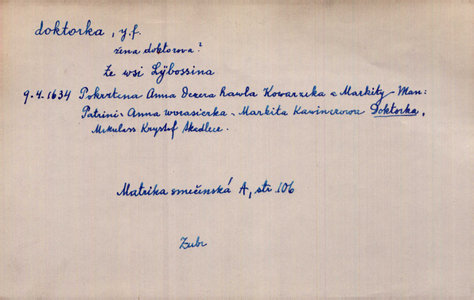 doktorka, y.f.
žena doktorova?
Ze wsi Lÿbossina
9.4.1634 Pokrztena Anna Dczera Hawla Kowarzcka a Markity Man:
Patrini: Anna worasierka Markita Doktorka,
Mikulass Krysstof Skedlece.
Matrika smečenská A, str. 106
Zubr